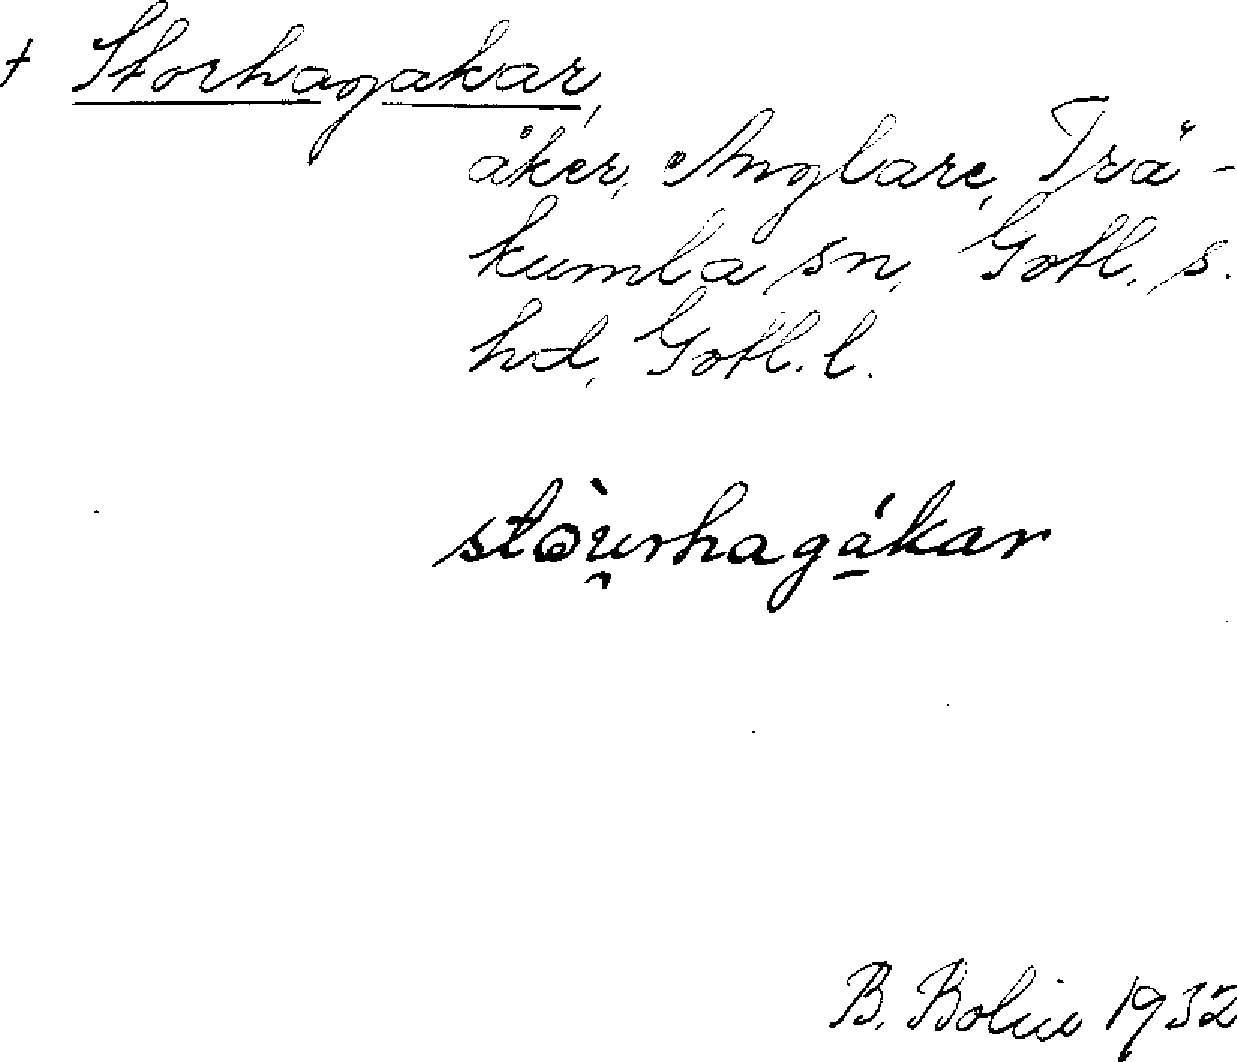 + Storhagakar,
åker, Anglare, Trä-
kumla sn, Gotl. s.
hd, Gotl. l.
stòu̯rhagá̱kar
B. Bolin 1932